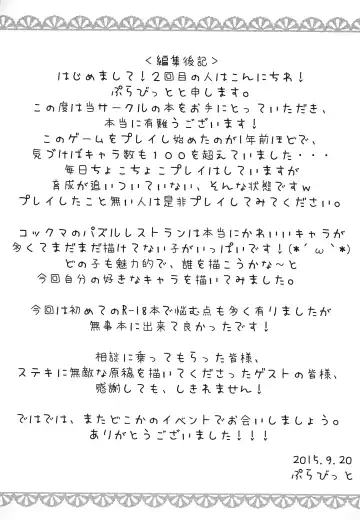 ＜編集後記＞
はじめまして！２回目の人はこんにちわ！
ぷらびっとと申します。
この度は当サークルの本をお手にとっていただき、
本当に有難うございます！
このゲームをプレイし始めたのが1年前ほどで、
気づけばキャラ数も１００を超えていました・・・
毎日ちょこちょこプレイはしていますが
育成が追いついていない、そんな状態ですｗ
プレイしたこと無い人は是非プレイしてみてください。
コックマのパズルレストランは本当にかわいいキャラが
多くてまだまだ描けてない子がいっぱいです！(*´ω`*)
どの子も魅力的で、誰を描こうかな～と
今回自分の好きなキャラを描いてみました。
今回は初めてのR-18本で悩む点も多く有りましたが
無事本に出来て良かったです！
相談に乗ってもらった皆様、
ステキに無敵な原稿を描いてくださったゲストの皆様、
感謝しても、しきれません！
ではでは、またどこかのイベントでお会いしましょう。
ありがとうございました！！！
2015.9.20
ぷらびっと